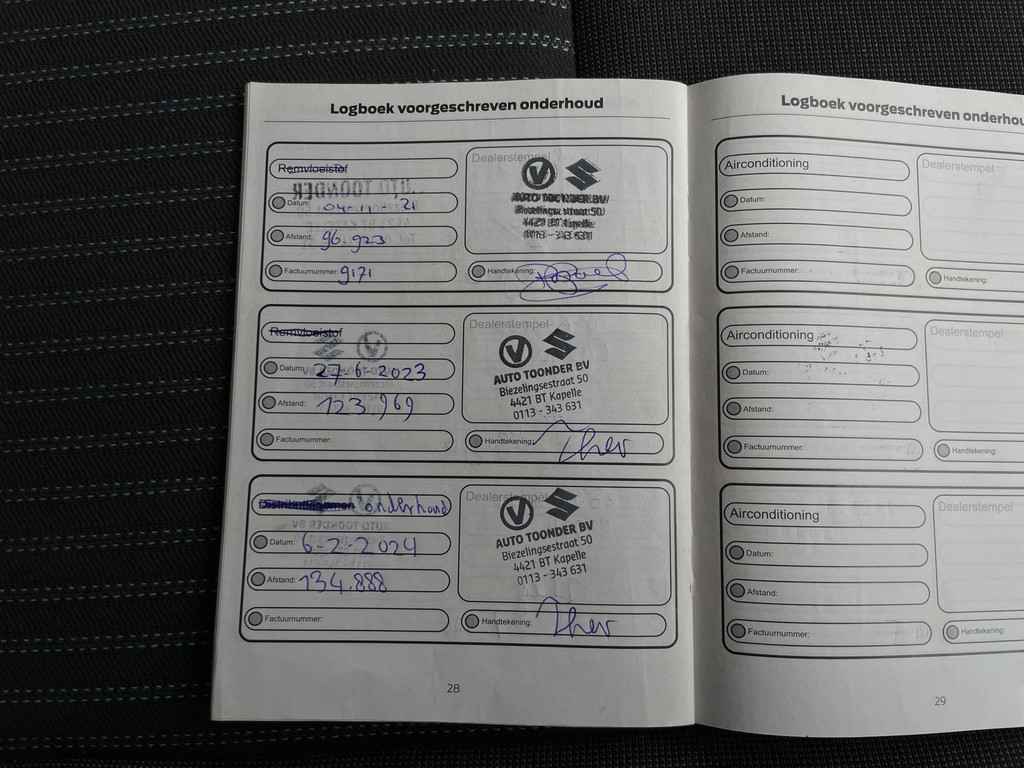 Logboek voorgeschreven onderhoud
Remvloeistof
Datum: 04-11-'21
Afstand: 96.923
Factuurnummer: 9171
Dealerstempel
AUTO TOONDER BV
Biezelingsestraat 50
4421 BT Kapelle
0113 - 343 631
Handtekening:
Remvloeistof
Datum: 27-6-2023
Afstand: 123.969
Factuurnummer:
Dealerstempel
AUTO TOONDER BV
Biezelingsestraat 50
4421 BT Kapelle
0113 - 343 631
Handtekening:
Distributieriemen onderhoud
Datum: 6-2-2024
Afstand: 134.888
Factuurnummer:
Dealerstempel
AUTO TOONDER BV
Biezelingsestraat 50
4421 BT Kapelle
0113 - 343 631
Handtekening:
28
Logboek voorgeschreven onderhou
Airconditioning
Datum:
Afstand:
Factuurnummer:
Dealerstempel
Handtekening:
Airconditioning
Datum:
Afstand:
Factuurnummer:
Dealerstempel
Handtekening:
Airconditioning
Datum:
Afstand:
Factuurnummer:
Dealerstempel
Handtekening:
29